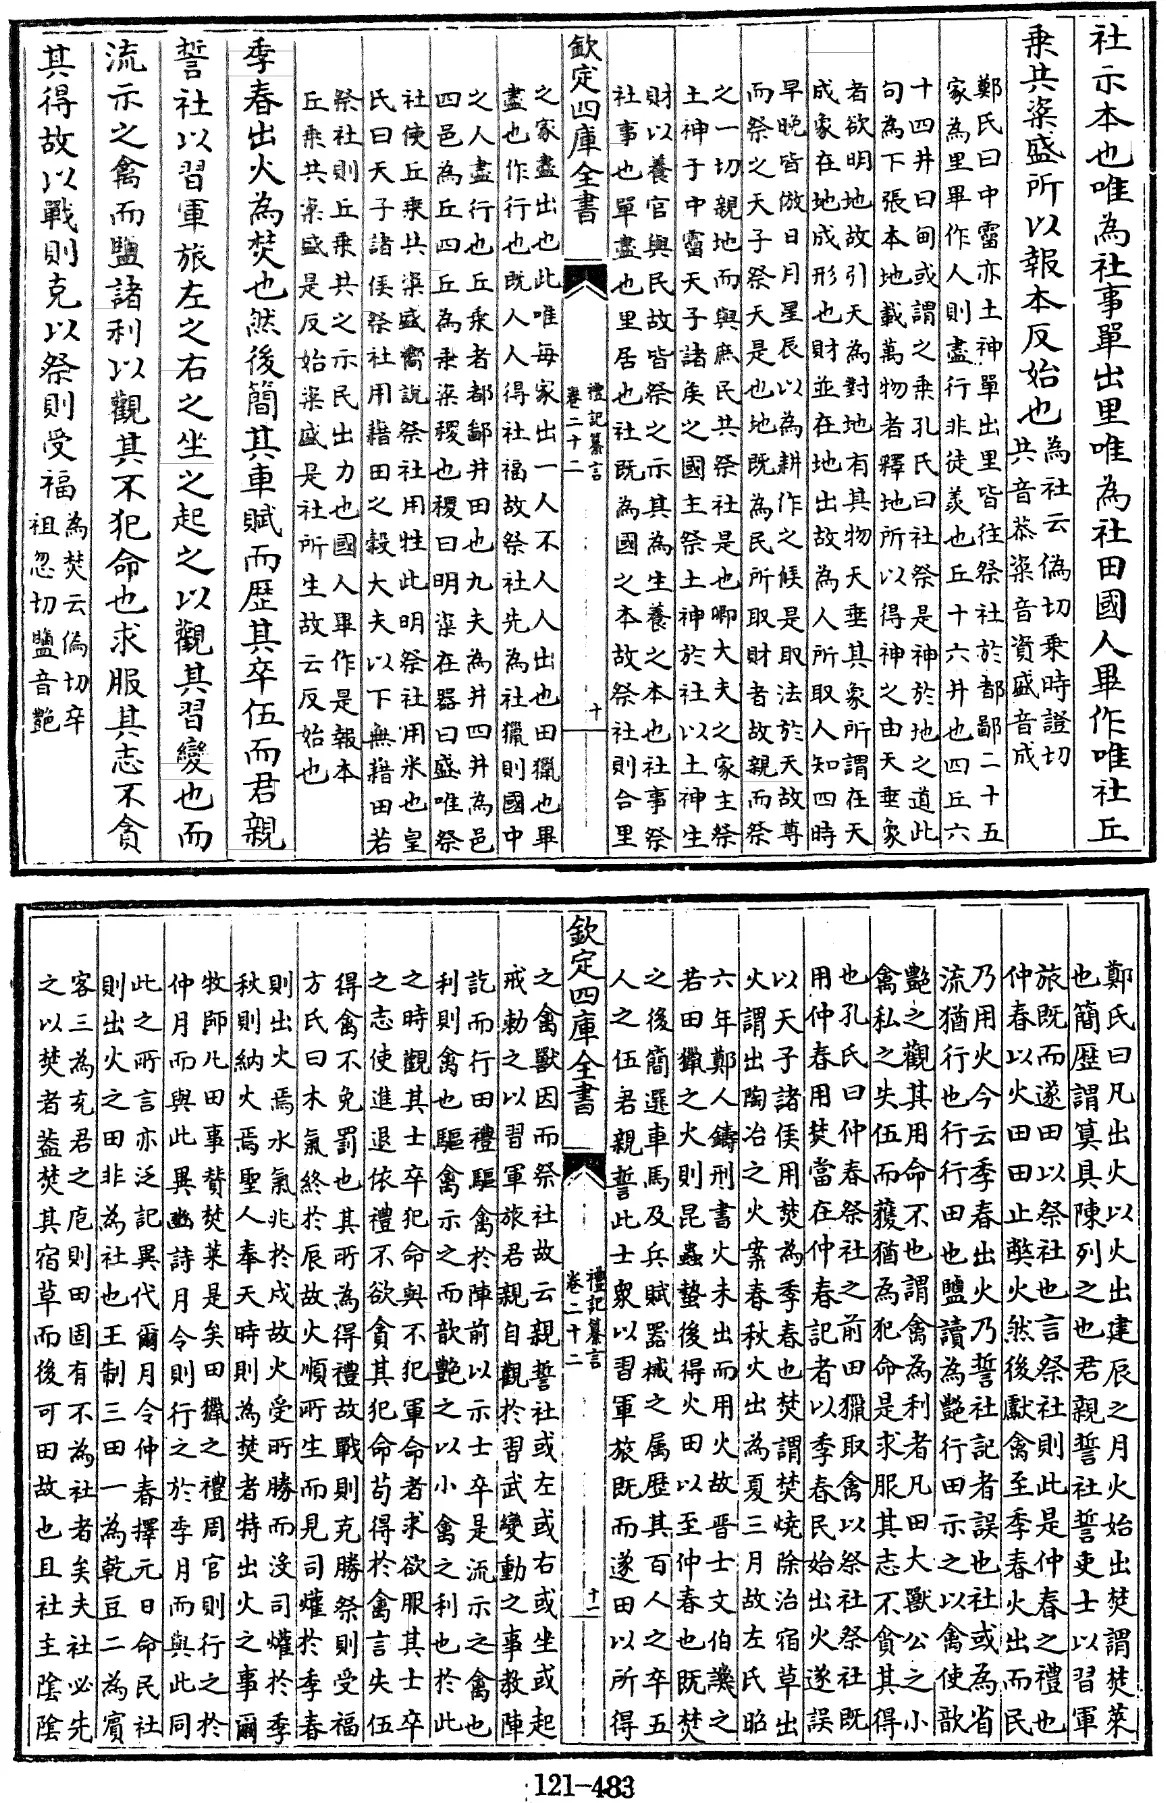 社示本也唯為社事單出里唯為社田國人畢作唯社丘
乗共粢盛所以報本反始也
為社云偽切乗時證切
共音恭粢音資盛音成
鄭氏曰中霤亦土神單出里皆往祭社於都鄙二十五
家為里畢作人則盡行非徒羨也丘十六井也四丘六
十四井曰甸或謂之乗孔氏曰社祭是神於地之道此
句為下張本地載萬物者釋地所以得神之由天垂象
者欲明地故引天為對地有其物天垂其象所謂在天
成象在地成形也財並在地出故為人所取人知四時
早晚皆倣日月星辰以為耕作之候是取法於天故尊
而祭之天子祭天是也地既為民所取財者故親而祭
之一切親地而與庶民共祭社是也卿大夫之家主祭
土神于中霤天子諸侯之國主祭土神於社以土神生
財以養官與民故皆祭之示其為生養之本也社事祭
社事也單盡也里居也社既為國之本故祭社則合里
欽定四庫全書
禮記纂言
卷二十二
十
之家盡出也此唯每家出一人不人人出也田獵也畢
盡也作行也既人人得社福故祭社先為社獵則國中
之人盡行也丘乗者都鄙井田也九夫為井四井為邑
四邑為丘四丘為乗粢稷也稷曰明粢在器曰盛唯祭
社使丘乗共粢盛嚮説祭社用牲此明祭社用米也皇
氏曰天子諸侯祭社用藉田之穀大夫以下無藉田若
祭社則丘乗共之示民出力也國人畢作是報本
丘乗共粢盛是反始粢盛是社所生故云反始也
季春出火為焚也然後簡其車賦而歴其卒伍而君親
誓社以習軍旅左之右之坐之起之以觀其習變也而
流示之禽而鹽諸利以觀其不犯命也求服其志不貪
其得故以戰則克以祭則受福
為焚云偽切卒
祖忽切鹽音艷
鄭氏曰凡出火以火出建辰之月火始出焚謂焚萊
也簡歴謂算具陳列之也君親誓社誓吏士以習軍
旅既而遂田以祭社也言祭社則此是仲春之禮也
仲春以火田田止弊火然後獻禽至季春火出而民
乃用火今云季春出火乃誓社記者誤也社或為省
流猶行也行行田也鹽讀為艷行田示之以禽使歆
艷之觀其用命不也謂禽為利者凡田大獸公之小
禽私之失伍而獲猶為犯命是求服其志不貪其得
也孔氏曰仲春祭社之前田獵取禽以祭社祭社既
用仲春用焚當在仲春記者以季春民始出火遂誤
以天子諸侯用焚為季春也焚謂焚燒除治宿草出
火謂出陶冶之火案春秋火出為夏三月故左氏昭
六年鄭人鑄刑書火未出而用火故晉士文伯譏之
若田獵之火則昆蟲蟄後得火田以至仲春也既焚
之後簡選車馬及兵賦器械之属歴其百人之卒五
人之伍君親誓此士衆以習軍旅既而遂田以所得
欽定四庫全書
禮記纂言
卷二十二
十一
之禽獸因而祭社故云親誓社或左或右或坐或起
戒勅之以習軍旅君親自觀於習武變動之事教陣
訖而行田禮驅禽於陣前以示士卒是流示之禽也
利則禽也驅禽示之而歆艷之以小禽之利也於此
之時觀其士卒犯命與不犯軍命者求欲服其士卒
之志使進退依禮不欲貪其犯命苟得於禽言失伍
得禽不免罰也其所為得禮故戰則克勝祭則受福
方氏曰木氣終於辰故火順所生而見司爟於季春
則出火焉水氣兆於戌故火受所勝而沒司爟於季
秋則納火焉聖人奉天時則為焚者特出火之事爾
牧師凡田事賛焚萊是矣田獵之禮周官則行之於
仲月而與此異豳詩月令則行之於季月而與此同
此之所言亦泛記異代爾月令仲春擇元日命民社
則出火之田非為社也王制三田一為乾豆二為賓
客三為充君之庖則田固有不為社者矣夫社必先
之以焚者葢焚其宿草而後可田故也且社主陰陰
121-483